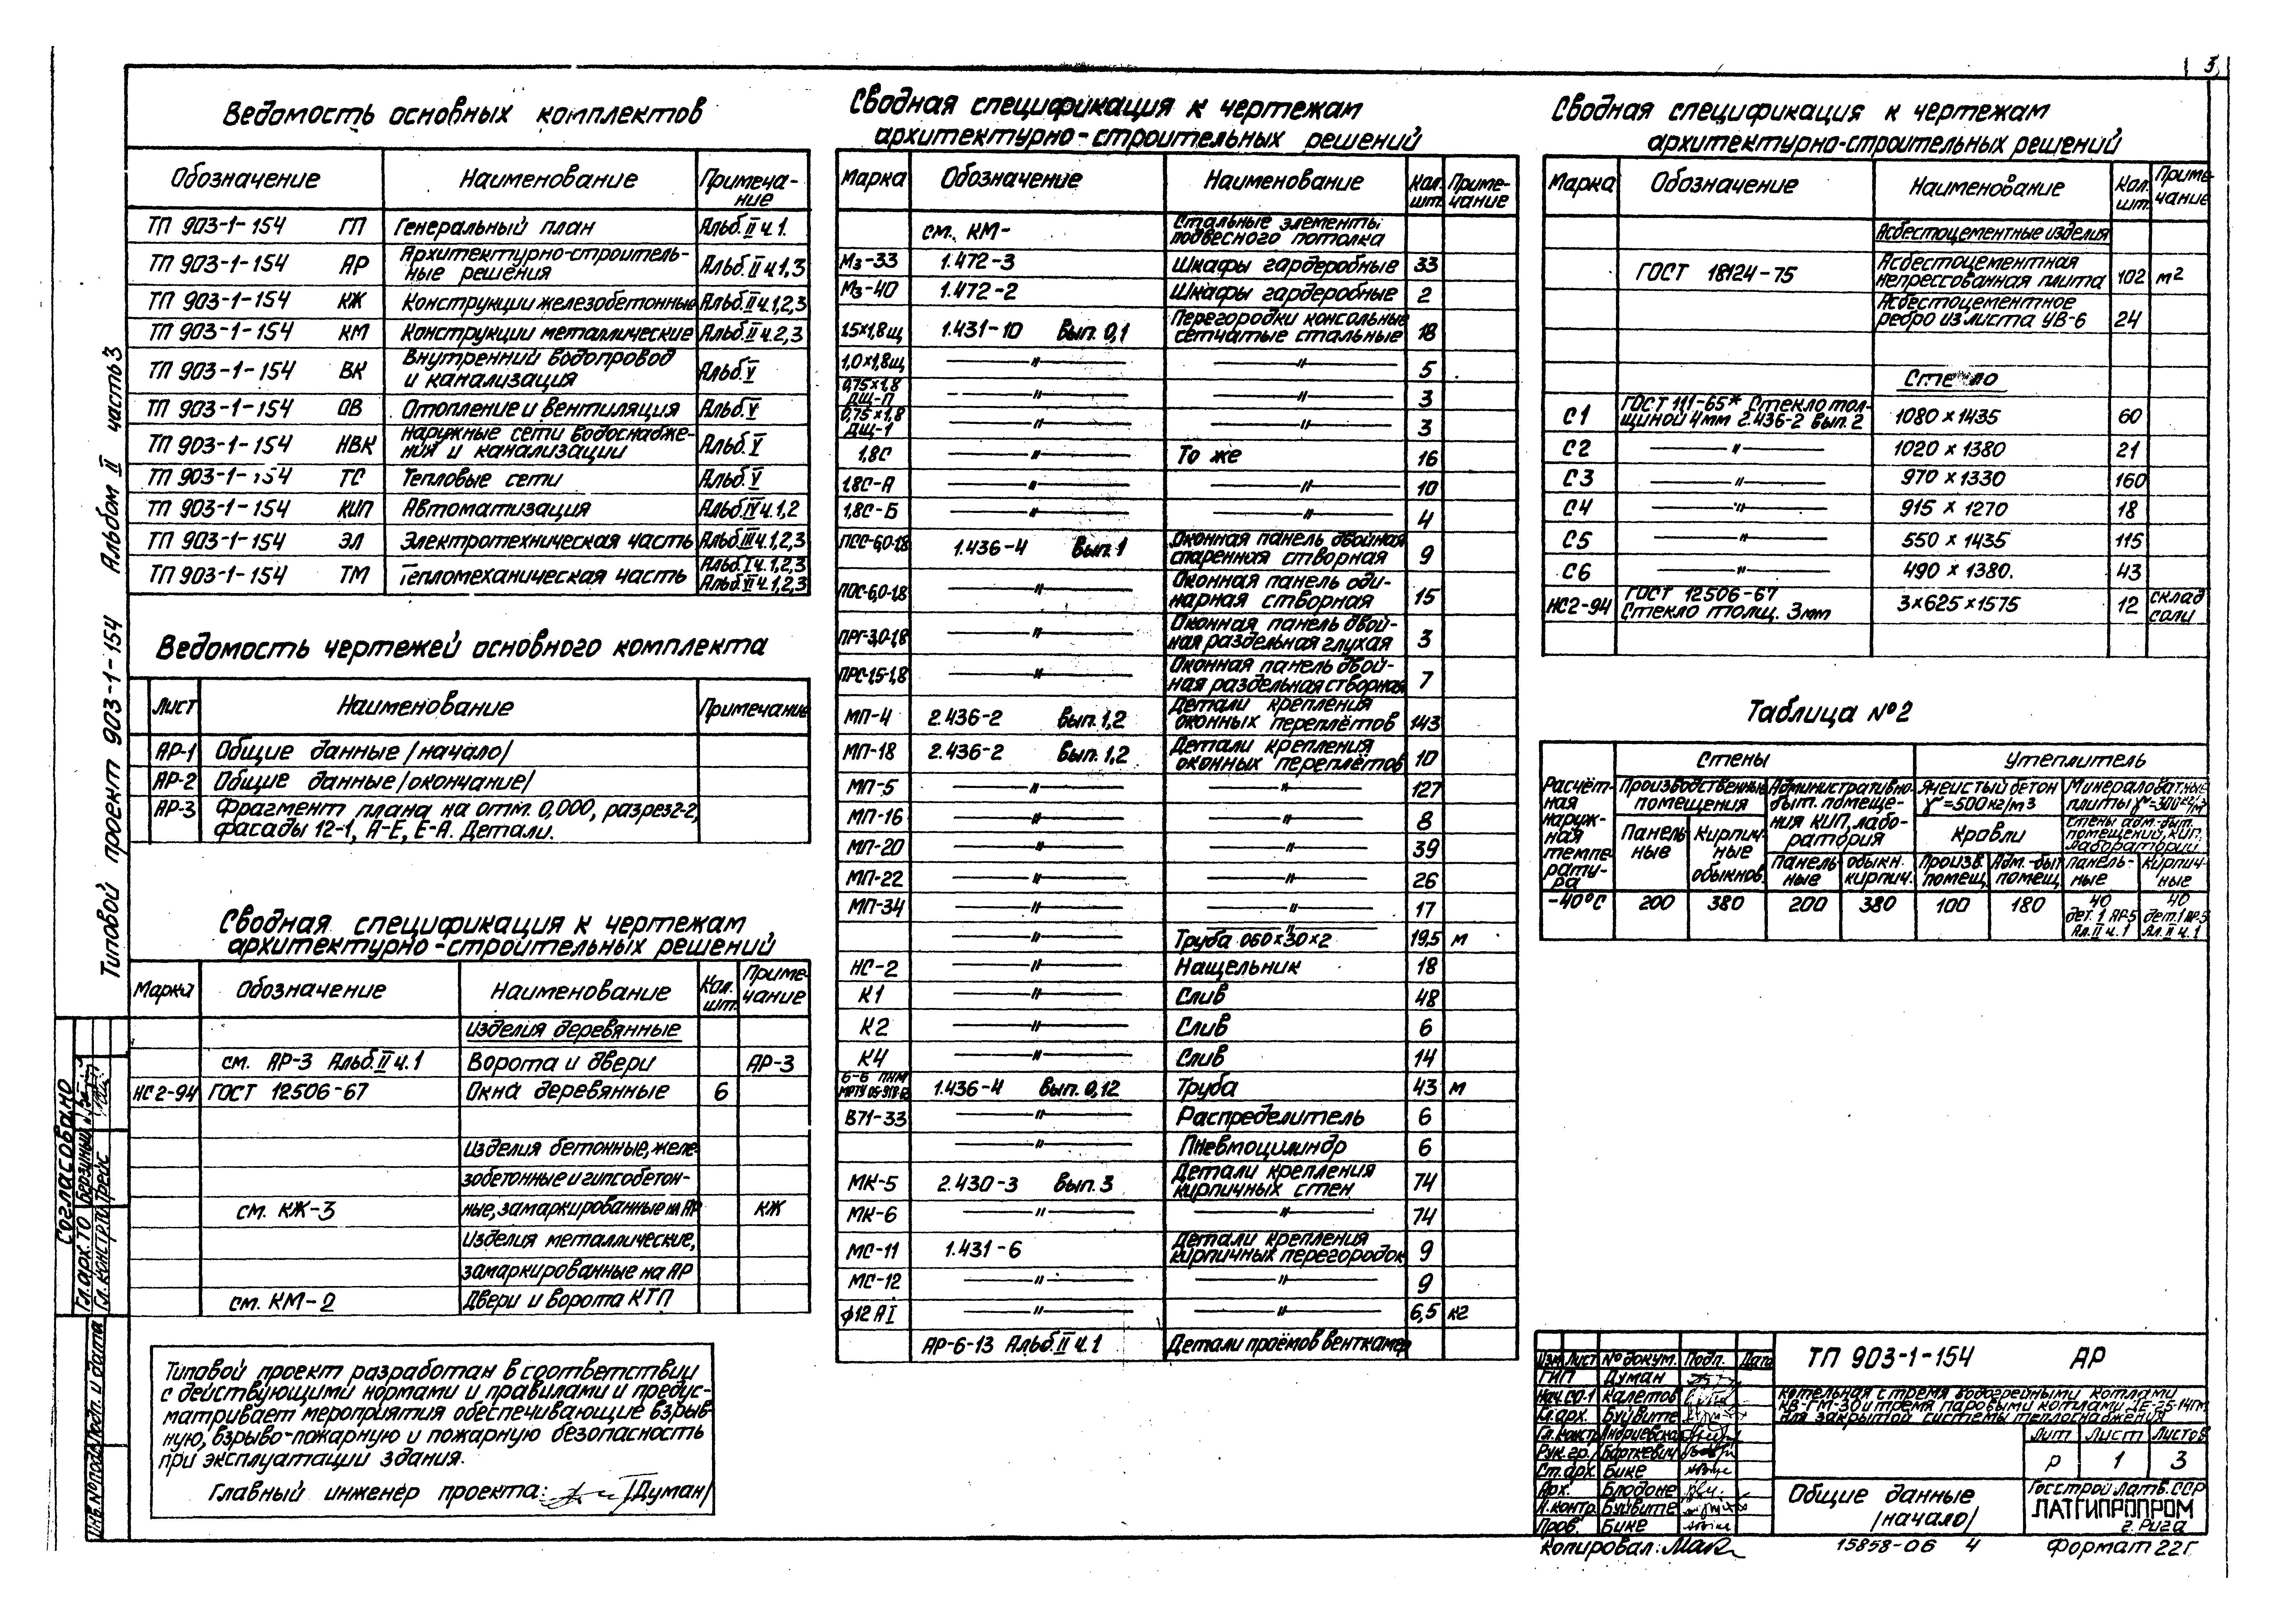 3
Типовой проект 903-1-154 Альбом II часть 3
Ведомость основных комплектов
Обозначение Наименование Примеча-
ние
ТП 903-1-154 ГП Генеральный план Альб. II ч.1.
ТП 903-1-154 АР Архитектурно-строитель-
ные решения Альб. II ч.1,3
ТП 903-1-154 КЖ Конструкции железобетонные Альб. II ч.1,2,3
ТП 903-1-154 КМ Конструкции металлические Альб. II ч.2,3
ТП 903-1-154 ВК Внутренний водопровод
и канализация Альб. V
ТП 903-1-154 ОВ Отопление и вентиляция Альб. V
ТП 903-1-154 НВК Наружные сети водоснабже-
ния и канализации Альб. V
ТП 903-1-154 ТС Тепловые сети Альб. V
ТП 903-1-154 КИП Автоматизация Альб. IV ч.1,2
ТП 903-1-154 ЭЛ Электротехническая часть Альб. III ч.1,2,3
ТП 903-1-154 ТМ Тепломеханическая часть Альб. I ч.1,2,3
Альб. VI ч.1,2,3
Ведомость чертежей основного комплекта
Лист Наименование Примечание
АР-1 Общие данные /начало/
АР-2 Общие данные /окончание/
АР-3 Фрагмент плана на отм. 0,000, разрез 2-2,
фасады 12-1, А-Е, Е-А. Детали.
Сводная спецификация к чертежам
архитектурно-строительных решений
Марка Обозначение Наименование Кол. шт. Приме-
чание
Изделия деревянные
см. АР-3 Альб. II ч.1 Ворота и двери АР-3
НС2-94 ГОСТ 12506-67 Окна деревянные 6
Изделия бетонные, желе-
зобетонные и гипсобетон-
см. КЖ-3 ные, замаркированные на АР КЖ
Изделия металлические,
замаркированные на АР
см. КМ-2 Двери и ворота КТП
Типовой проект разработан в соответствии
с действующими нормами и правилами и предус-
матривает мероприятия обеспечивающие взрыв-
ную, взрыво-пожарную и пожарную безопасность
при эксплуатации здания.
Главный инженер проекта: /Думан/
Согласовано
Гл. арх. ТО Берзиньш
Гл. констр. ТО Трейс
Инв. № подл. Подп. и дата
Сводная спецификация к чертежам
архитектурно-строительных решений
Марка Обозначение Наименование Кол. шт. Приме-
чание
см. КМ- Стальные элементы
подвесного потолка
М3-33 1.472-3 Шкафы гардеробные 33
М3-40 1.472-2 Шкафы гардеробные 2
1,5×1,8щ 1.431-10 Вып. 0,1 Перегородки консольные
сетчатые стальные 18
1,0×1,8щ —"— —"— 5
0,75×1,8
ДЩ-П —"— —"— 3
0,75×1,8
ДЩ-1 —"— —"— 3
1,8С —"— То же 16
1,8С-А —"— —"— 10
1,8С-Б —"— —"— 4
ПСС-6,0-1,8 1.436-4 Вып. 1 Оконная панель двойная
спаренная створная 9
ПОС-6,0-1,8 —"— Оконная панель оди-
нарная створная 15
ПРГ-3,0-1,8 —"— Оконная панель двой-
ная раздельная глухая 3
ПРС-1,5-1,8 —"— Оконная панель двой-
ная раздельная створная 7
МП-4 2.436-2 Вып. 1,2 Детали крепления
оконных переплётов 143
МП-18 2.436-2 Вып. 1,2 Детали крепления
оконных переплётов 10
МП-5 —"— —"— 127
МП-16 —"— —"— 8
МП-20 —"— —"— 39
МП-22 —"— —"— 26
МП-34 —"— —"— 17
—"— Труба 060×30×2 19,5 м
НС-2 —"— Нащельник 18
К1 —"— Слив 48
К2 —"— Слив 6
К4 —"— Слив 14
1.436-4 Вып. 0,12 Труба 43 м
В71-33 —"— Распределитель 6
—"— Пневмоцилиндр 6
МК-5 2.430-3 Вып. 3 Детали крепления
кирпичных стен 74
МК-6 —"— —"— 74
МС-11 1.431-6 Детали крепления
кирпичных перегородок 9
МС-12 —"— —"— 9
ф12 АI —"— —"— 6,5 кг
АР-6-13 Альб. II ч.1 Детали проёмов венткамер
Сводная спецификация к чертежам
архитектурно-строительных решений
Марка Обозначение Наименование Кол. шт. Приме-
чание
Асбестоцементные изделия
ГОСТ 18124-75 Асбестоцементная
непрессованная плита 102 м2
Асбестоцементное
ребро из листа УВ-6 24
Стекло
С1 ГОСТ 111-65* Стекло тол-
щиной 4мм 2.436-2 Вып. 2 1080×1435 60
С2 —"— 1020×1380 21
С3 —"— 970×1330 160
С4 —"— 915×1270 18
С5 —"— 550×1435 115
С6 —"— 490×1380. 43
НС2-94 ГОСТ 12506-67
Стекло толщ. 3мм 3×625×1575 12 склад
соли
Таблица №2
Расчёт-
ная
наруж-
ная
темпе-
рату-
ра
Стены Утеплитель
Производственные
помещения
Административно-
быт. помеще-
ния КИП, лабо-
ратория
Ячеистый бетон
γ=500кг/м3
Минераловатные
плиты γ=300кг/м3
Панель-
ные
Кирпич-
ные
обыкнов.
Кровли
Стены адм.-быт.
помещений, КИП,
лаборатории
Панель-
ные
обыкн.
кирпич.
Произв.
помещ.
Адм.-быт
помещ.
Панель-
ные
Кирпич-
ные
-40°С 200 380 200 380 100 180 40 40
дет. 1 АР-5 дет. 1 АР-5
Ал. II ч.1 Ал. II ч.1
Изм. Лист № докум. Подп. Дата
ГИП Думан
Нач. СО-1 Калетов
Гл. арх. Буйвите
Гл. констр. Андриевская
Рук. гр. Барткевич
Ст. арх. Бике
Арх. Блодоне
Н. контр. Буйвите
Пров. Бике
ТП 903-1-154 АР
Котельная с тремя водогрейными котлами
КВ-ГМ-30 и тремя паровыми котлами ДЕ-25-14ГМ
для закрытой системы теплоснабжения
Лит Лист Листов
Р 1 3
Общие данные
/начало/
Госстрой Латв. ССР
ЛАТГИПРОПРОМ
г. Рига
Копировал:
15858-06 4
Формат 22Г